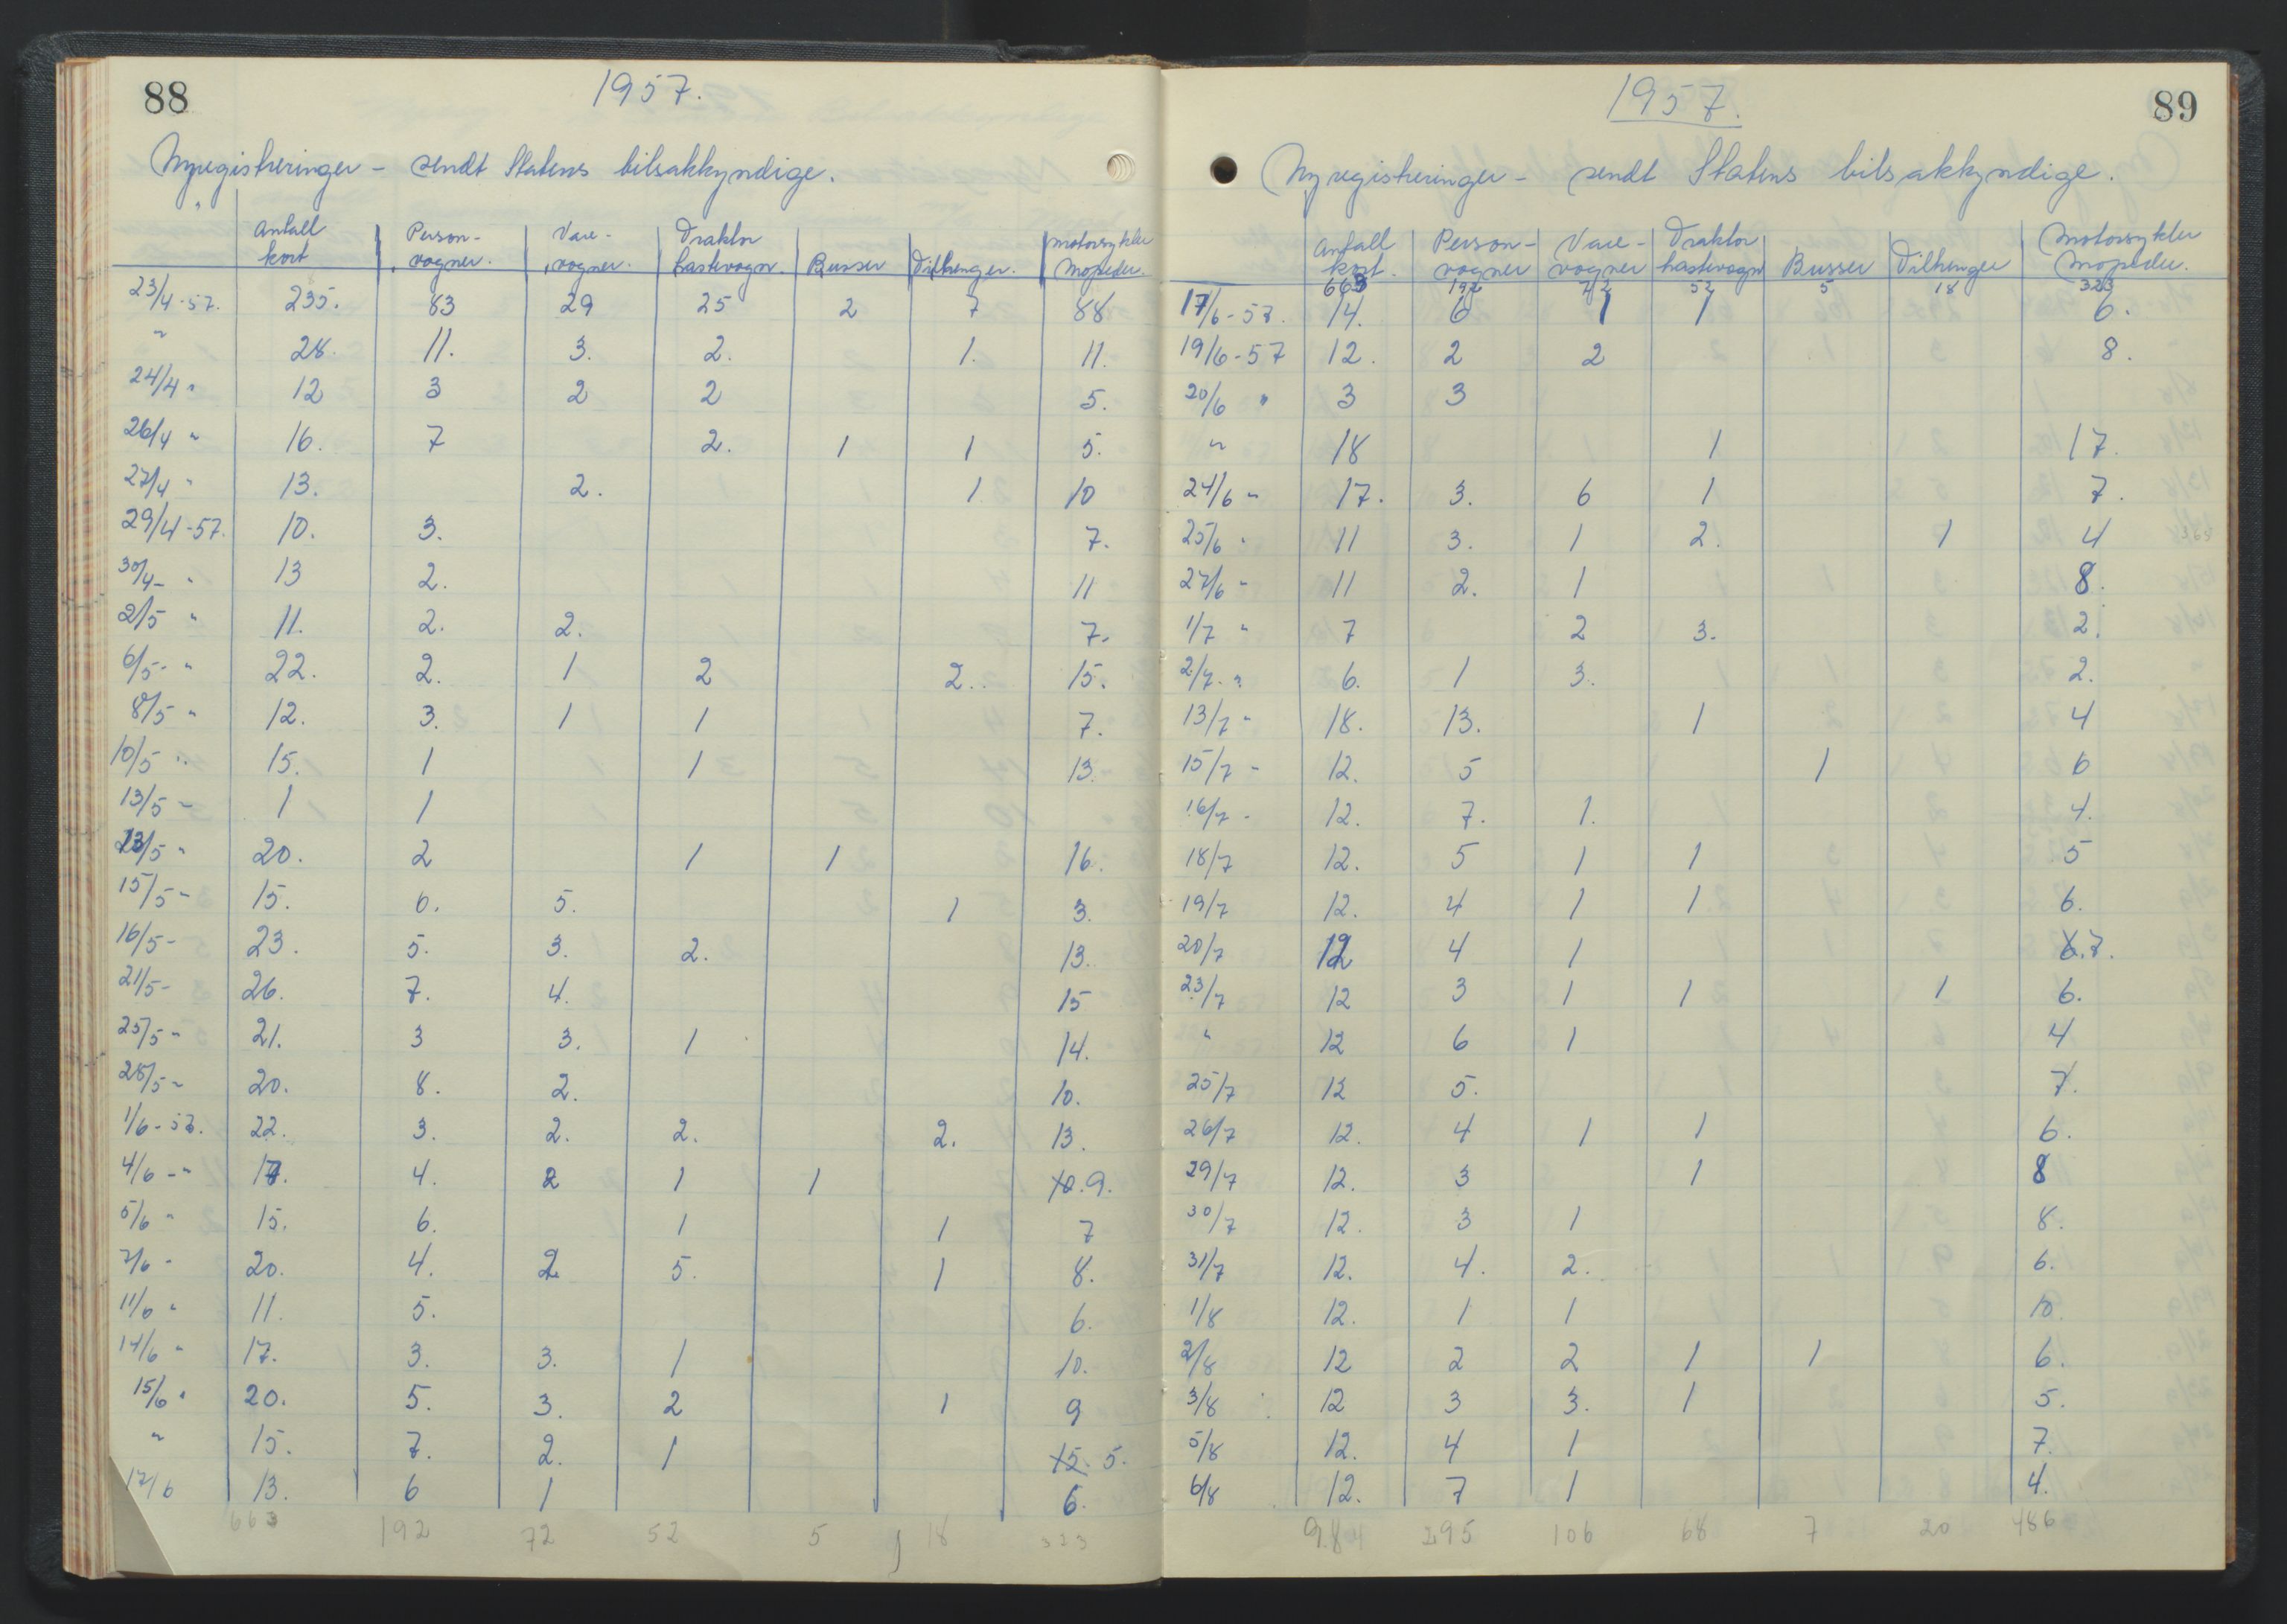 88
1957.
Nyregistreringer - sendt Statens bilsakkyndige.
Antall kort | Person-vogner. | Vare-vogner. | Traktor Lastevogn. | Busser | Tilhenger. | Motorsykler Mopeder.
23/4-57. 235. 83 29 25 2 7 88
" 28. 11. 3. 2. 1. 11.
24/4 " 12 3 2 2 5.
26/4 " 16. 7 2. 1 1 5.
27/4 " 13. 2. 1 10
29/4-57. 10. 3. 7.
30/4- " 13 2. 11
2/5 " 11. 2. 2. 7.
6/5- " 22. 2. 1 2 2. 15.
8/5 " 12. 3. 1 1 7.
10/5 " 15. 1 1 13.
13/5 - 1 1
13/5 " 20. 2 1 1 16.
15/5 - 15. 6. 5. 1 3.
16/5 - 23. 5. 3. 2. 13.
21/5 - 26. 7. 4. 15
25/5 - 21. 3 3. 1 14.
28/5 - 20. 8. 2. 10.
1/6-57. 22. 3. 2. 2. 2. 13.
4/6 - " 17. 4. 2 1 1 10. 9.
5/6 " 15. 6. 1 1 7
7/6 - 20. 4. 2. 5. 1 8.
11/6 " 11. 5. 6.
14/6 " 17. 3. 3. 1 10.
15/6 " 20. 5. 3. 2 1 9
" 15. 7. 2. 1 15. 5.
17/6 13. 6 1 6.
663 192 72 52 5 18 323
89
1957.
Nyregistreringer - sendt Statens bilsakkyndige.
Antall kort. | Person-vogner | Vare-vogner | Traktor Lastevogn | Busser | Tilhenger | Motorsykler Mopeder.
663 192 72 52 5 18 323
17/6-57. 14. 6 1 1 6.
19/6-57 12. 2 2 8.
20/6 " 3 3
" 18 1 17.
24/6 " 17. 3. 6 1 7.
25/6 " 11 3. 1 2. 1 4
27/6 - 11 2. 1 8.
1/7 " 7 2 3. 2.
2/7. " 6. 1 3. 2.
13/7 " 18. 13. 1 4
15/7 - 12. 5 1 6
16/7 - 12. 7. 1. 4.
18/7 12. 5 1 1 5
19/7 12. 4 1 1 6.
20/7 12 4 1 6. 7.
23/7 12 3 1 1 1 6.
" 12 6 1 4
25/7 12 5. 7.
26/7 12. 4 1 1 6.
29/7 12. 3 1 8
30/7 12. 3 1 8.
31/7 12. 4. 2. 6.
1/8 12. 1 1 10.
2/8 12 2 2 1 1 6.
3/8 12 3 3. 1 5.
5/8 12. 4 1 7.
6/8 12. 7 1 4.
984 295 106 68 7 20 486